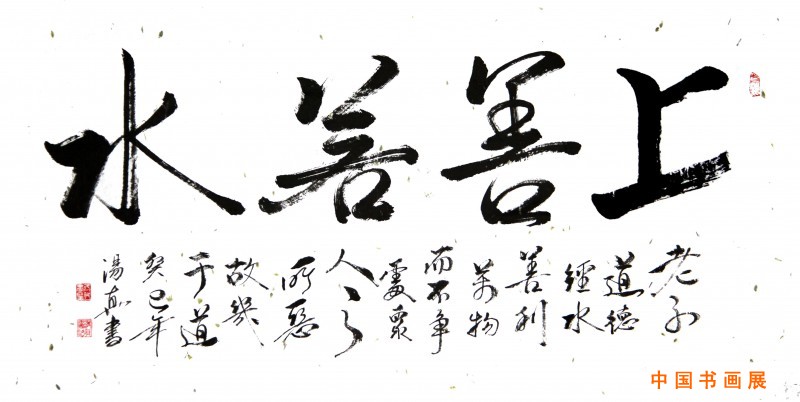 上善若水
老子
道德
經水
善利
萬物
而不争
處衆
人之
所惡
故幾
于道
癸巳年
湯書
中国书画展